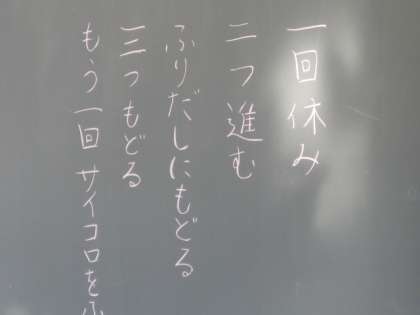 一回休み
二つ進む
ふりだしにもどる
三つもどる
もう一回サイコロをふ